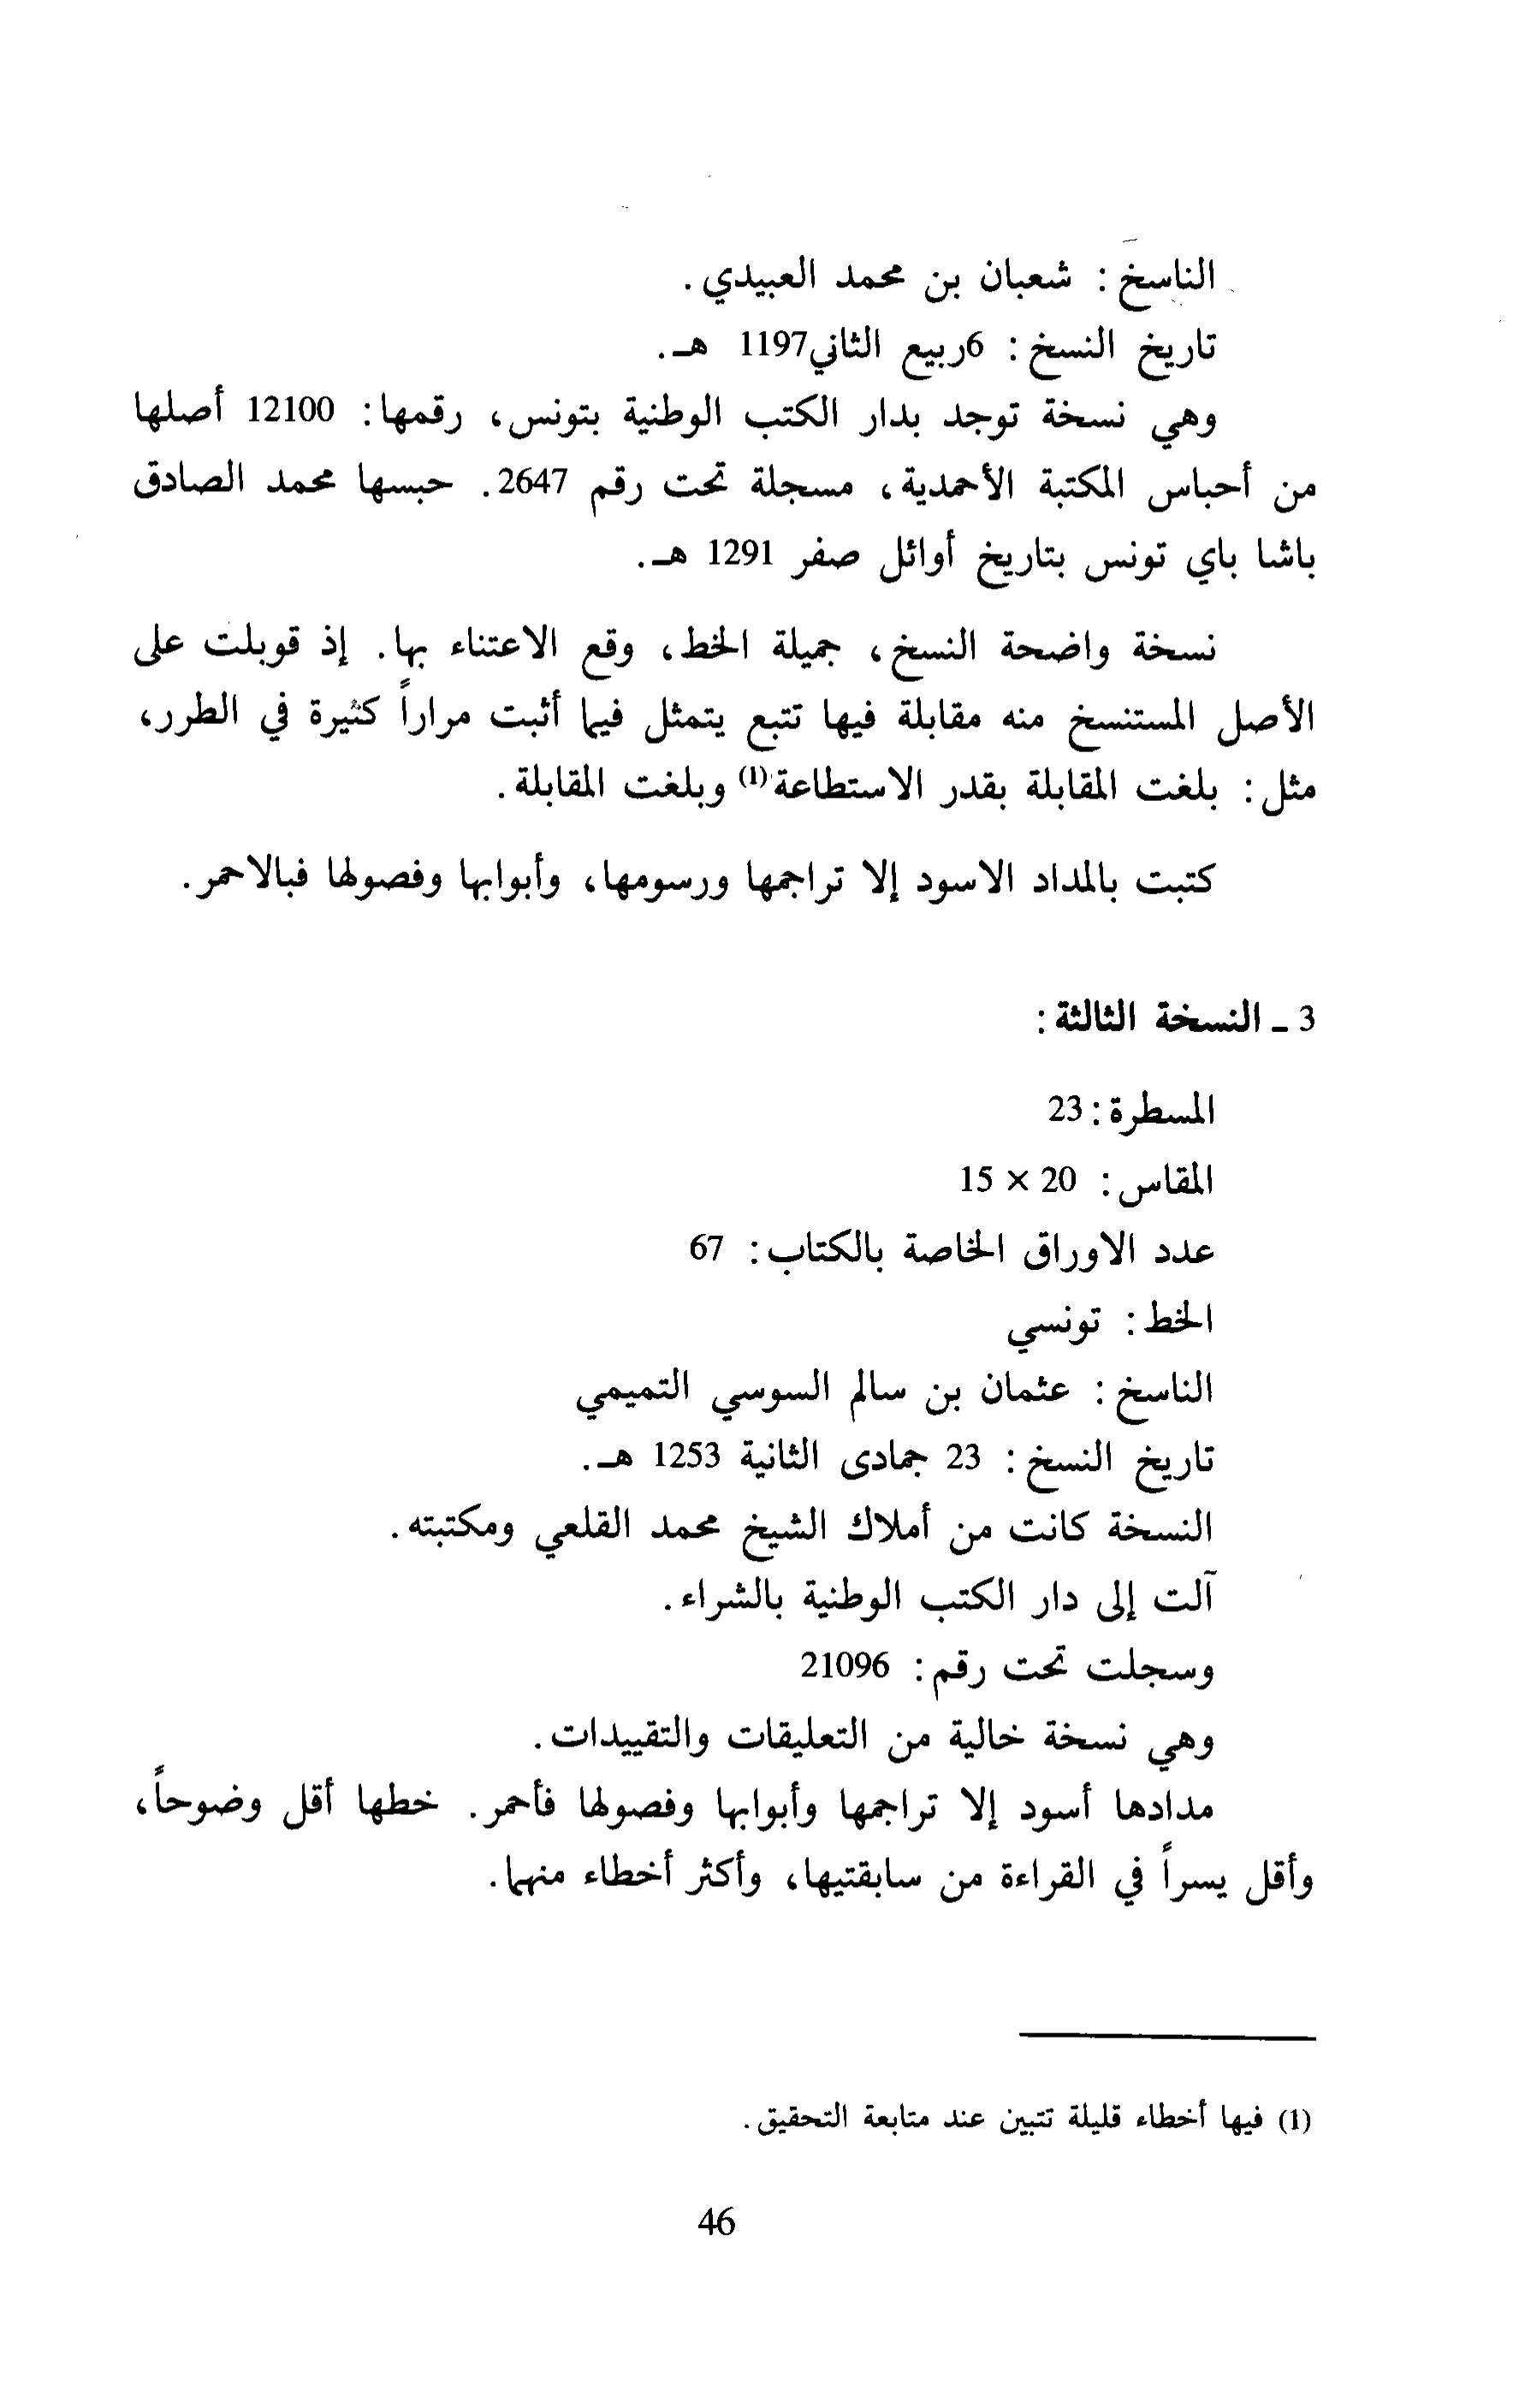 الناسخ : شعبان بن محمد العبيدي .
تاريخ النسخ : 6ربيع الثاني1197 هـ.
وهي نسخة توجد بدار الكتب الوطنية بتونس، رقمها: 12100 أصلها
من أحباس المكتبة الأحمدية، مسجلة تحت رقم 2647. حبسها محمد الصادق
باشا باي تونس بتاريخ أوائل صفر 1291 هـ.
نسخة واضحة النسخ، جميلة الخط، وقع الاعتناء بها. إذ قوبلت على
الأصل المستنسخ منه مقابلة فيها تتبع يتمثل فيما أثبت مراراً كثيرة في الطرر،
مثل : بلغت المقابلة بقدر الاستطاعة(1) وبلغت المقابلة .
كتبت بالمداد الاسود إلا تراجمها ورسومها، وأبوابها وفصولها فبالاحمر.
3 - النسخة الثالثة :
المسطرة : 23
المقاس : 20 × 15
عدد الاوراق الخاصة بالكتاب : 67
الخط : تونسي
الناسخ : عثمان بن سالم السوسي التميمي
تاريخ النسخ : 23 جمادى الثانية 1253 هـ.
النسخة كانت من أملاك الشيخ محمد القلعي ومكتبته.
آلت إلى دار الكتب الوطنية بالشراء.
وسجلت تحت رقم : 21096
وهي نسخة خالية من التعليقات والتقييدات.
مدادها أسود إلا تراجمها وأبوابها وفصولها فأحمر. خطها أقل وضوحاً،
وأقل يسراً في القراءة من سابقتيها، وأكثر أخطاء منهما.
(1) فيها أخطاء قليلة تتبين عند متابعة التحقيق .
46